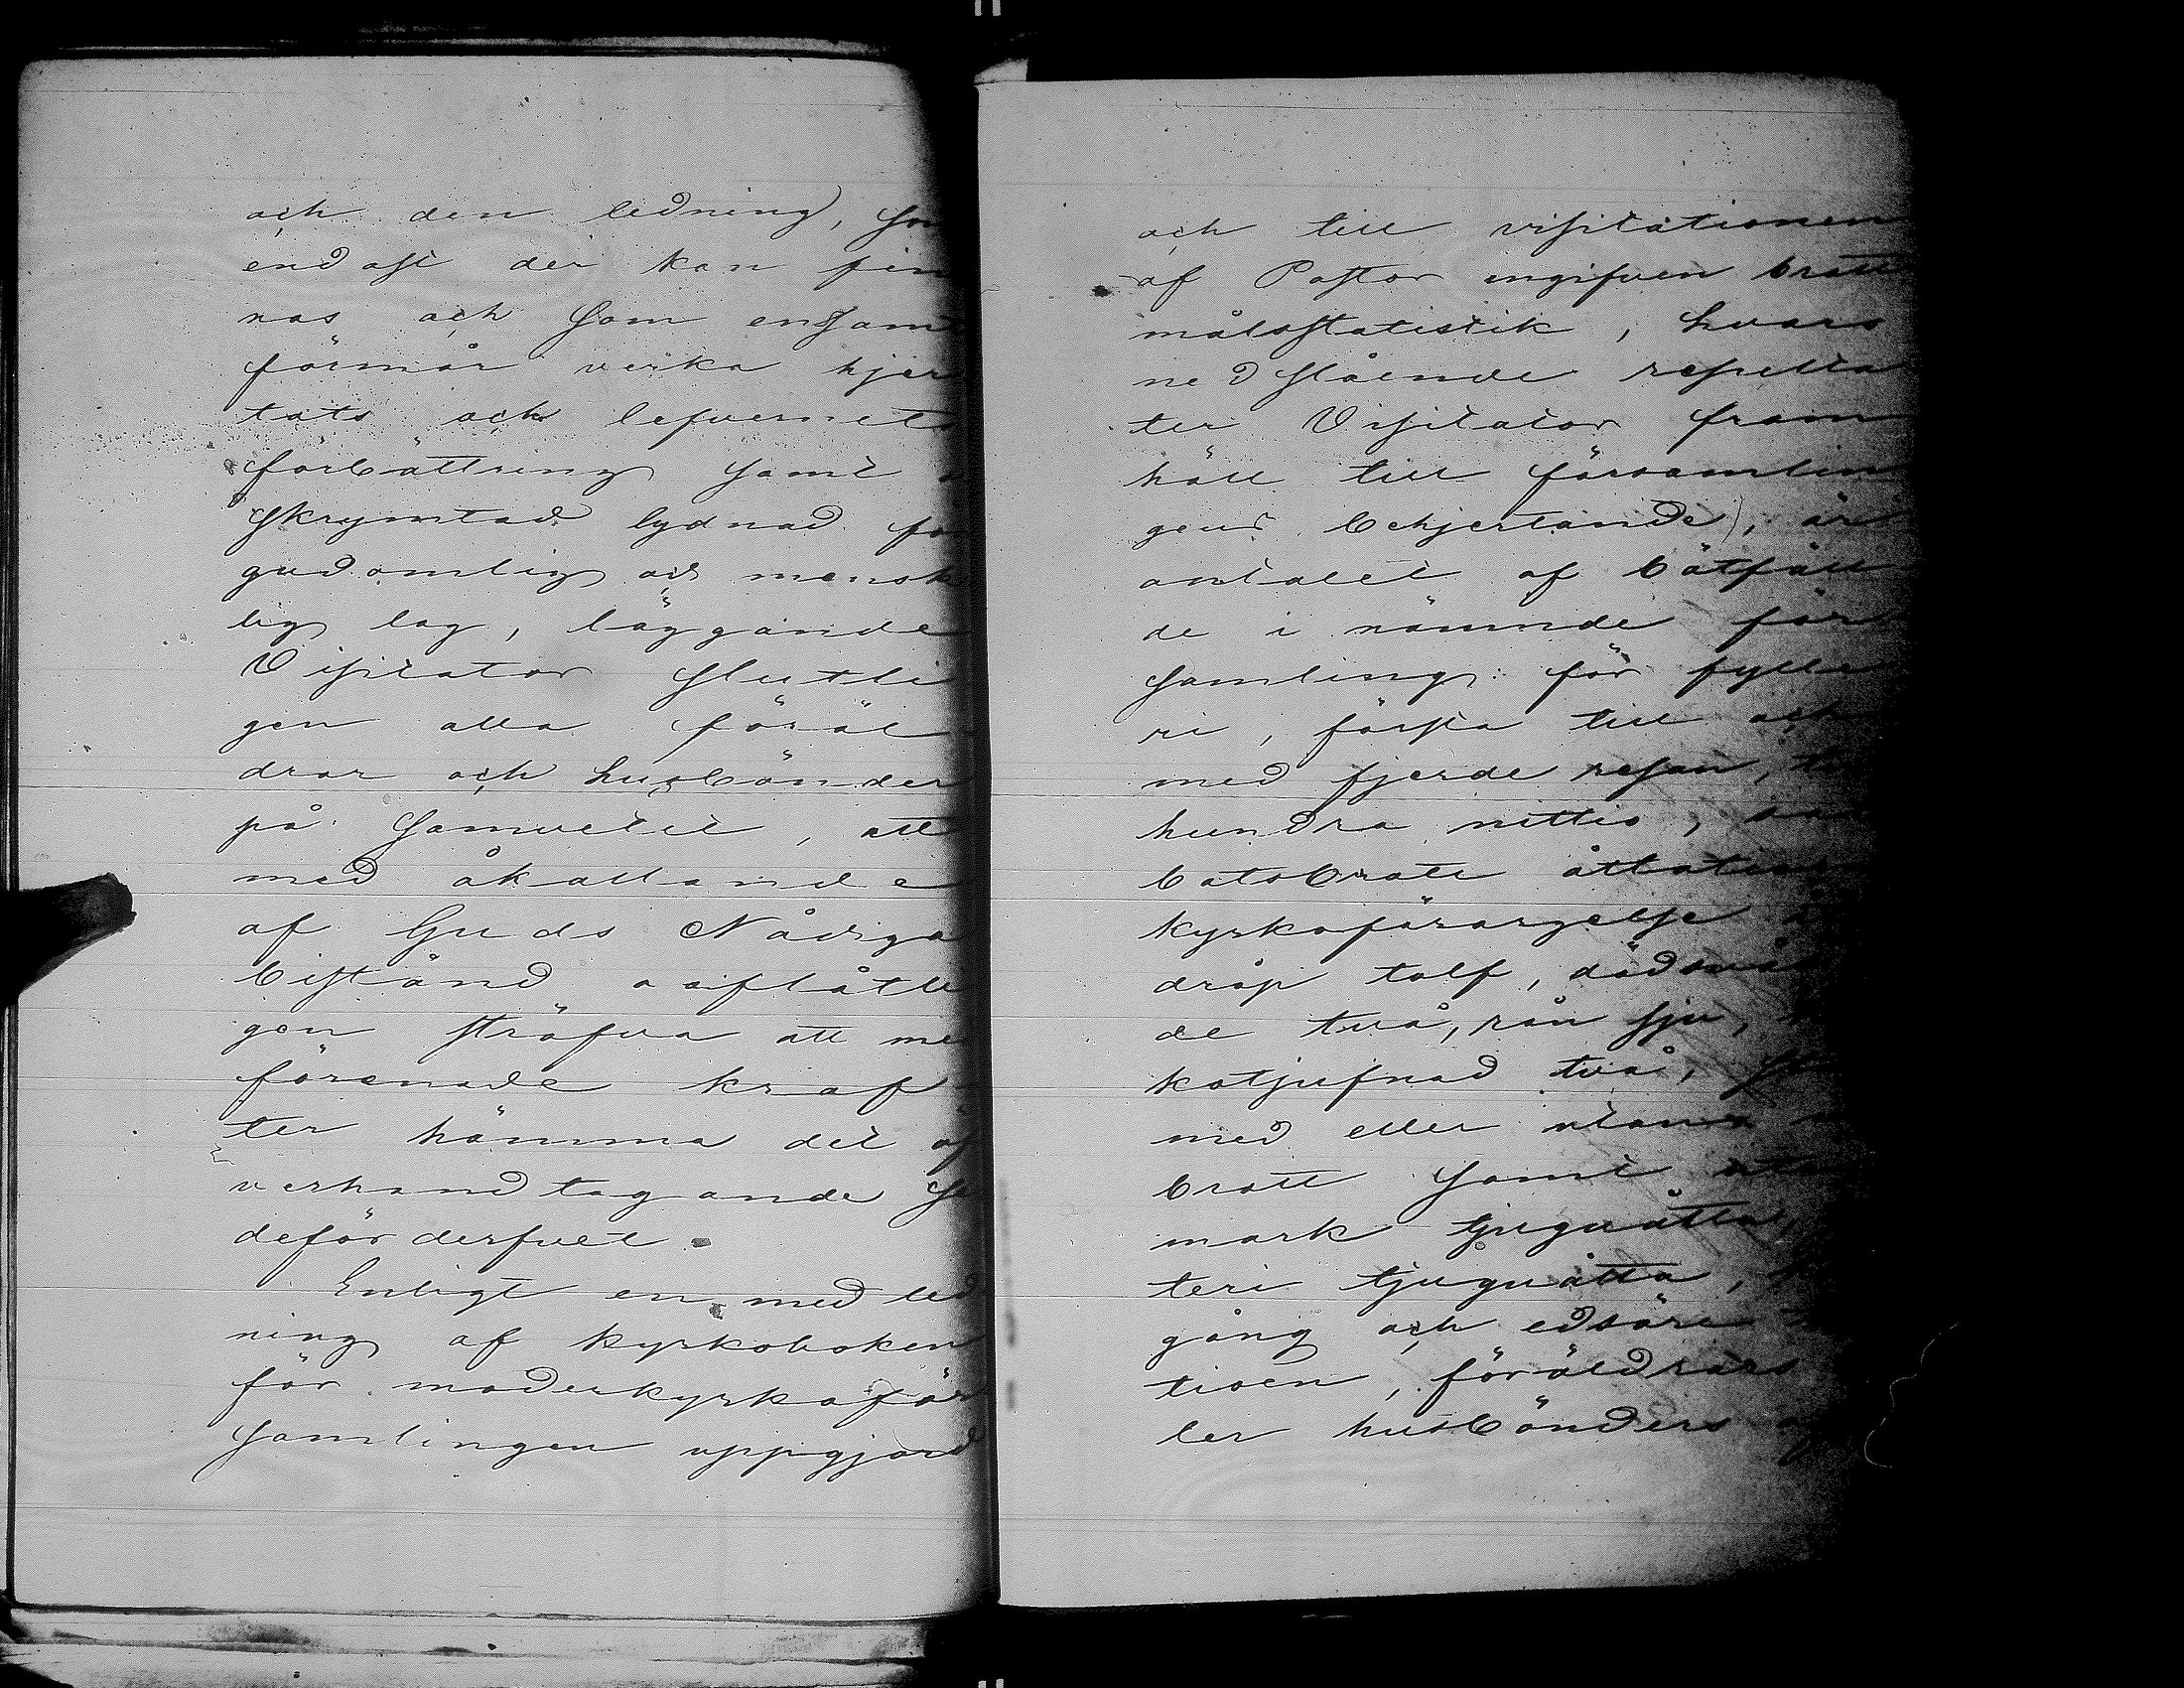 och den ledning, som
endast der kan fin
nas och som ensamt
förmår verka hjer
tats och lefvernets
förbättring samt
skrymtad lydnad för
gudomlig och mensk
lig lag, läggande
Visitator slutli
gen alla föräl
drar och husbönder
på samvetet, att
med åkallande
af Guds Nådiga
bistånd oaflåtli
gen sträfva att me
förenade kraf
ter hämma det öf
verhandtagande se
deförderfvet.
Enligt en med led
ning af kyrkoboken
för moderkyrkoför
samlingen uppgjord
och till visitationen
af Pastor ingifven brott
målsstatistik, hvars
nedslående resulta
ter Visitator fram
höll till församlin
gens behjertande, är
antalet af bötfäll
de i nämnde för
samling: för fylle
ri, första till och
med fjerde resan,
hundra nittio,
batsbrott åttatio
kyrkoförargelse
dråp tolf, dödsvål
de två, rån sju,
kotjufnad två,
med eller utan
brott samt
mark tjuguåtta,
teri tjuguåtta,
gång och edsöre
tisen, föräldrars
ler husbönders